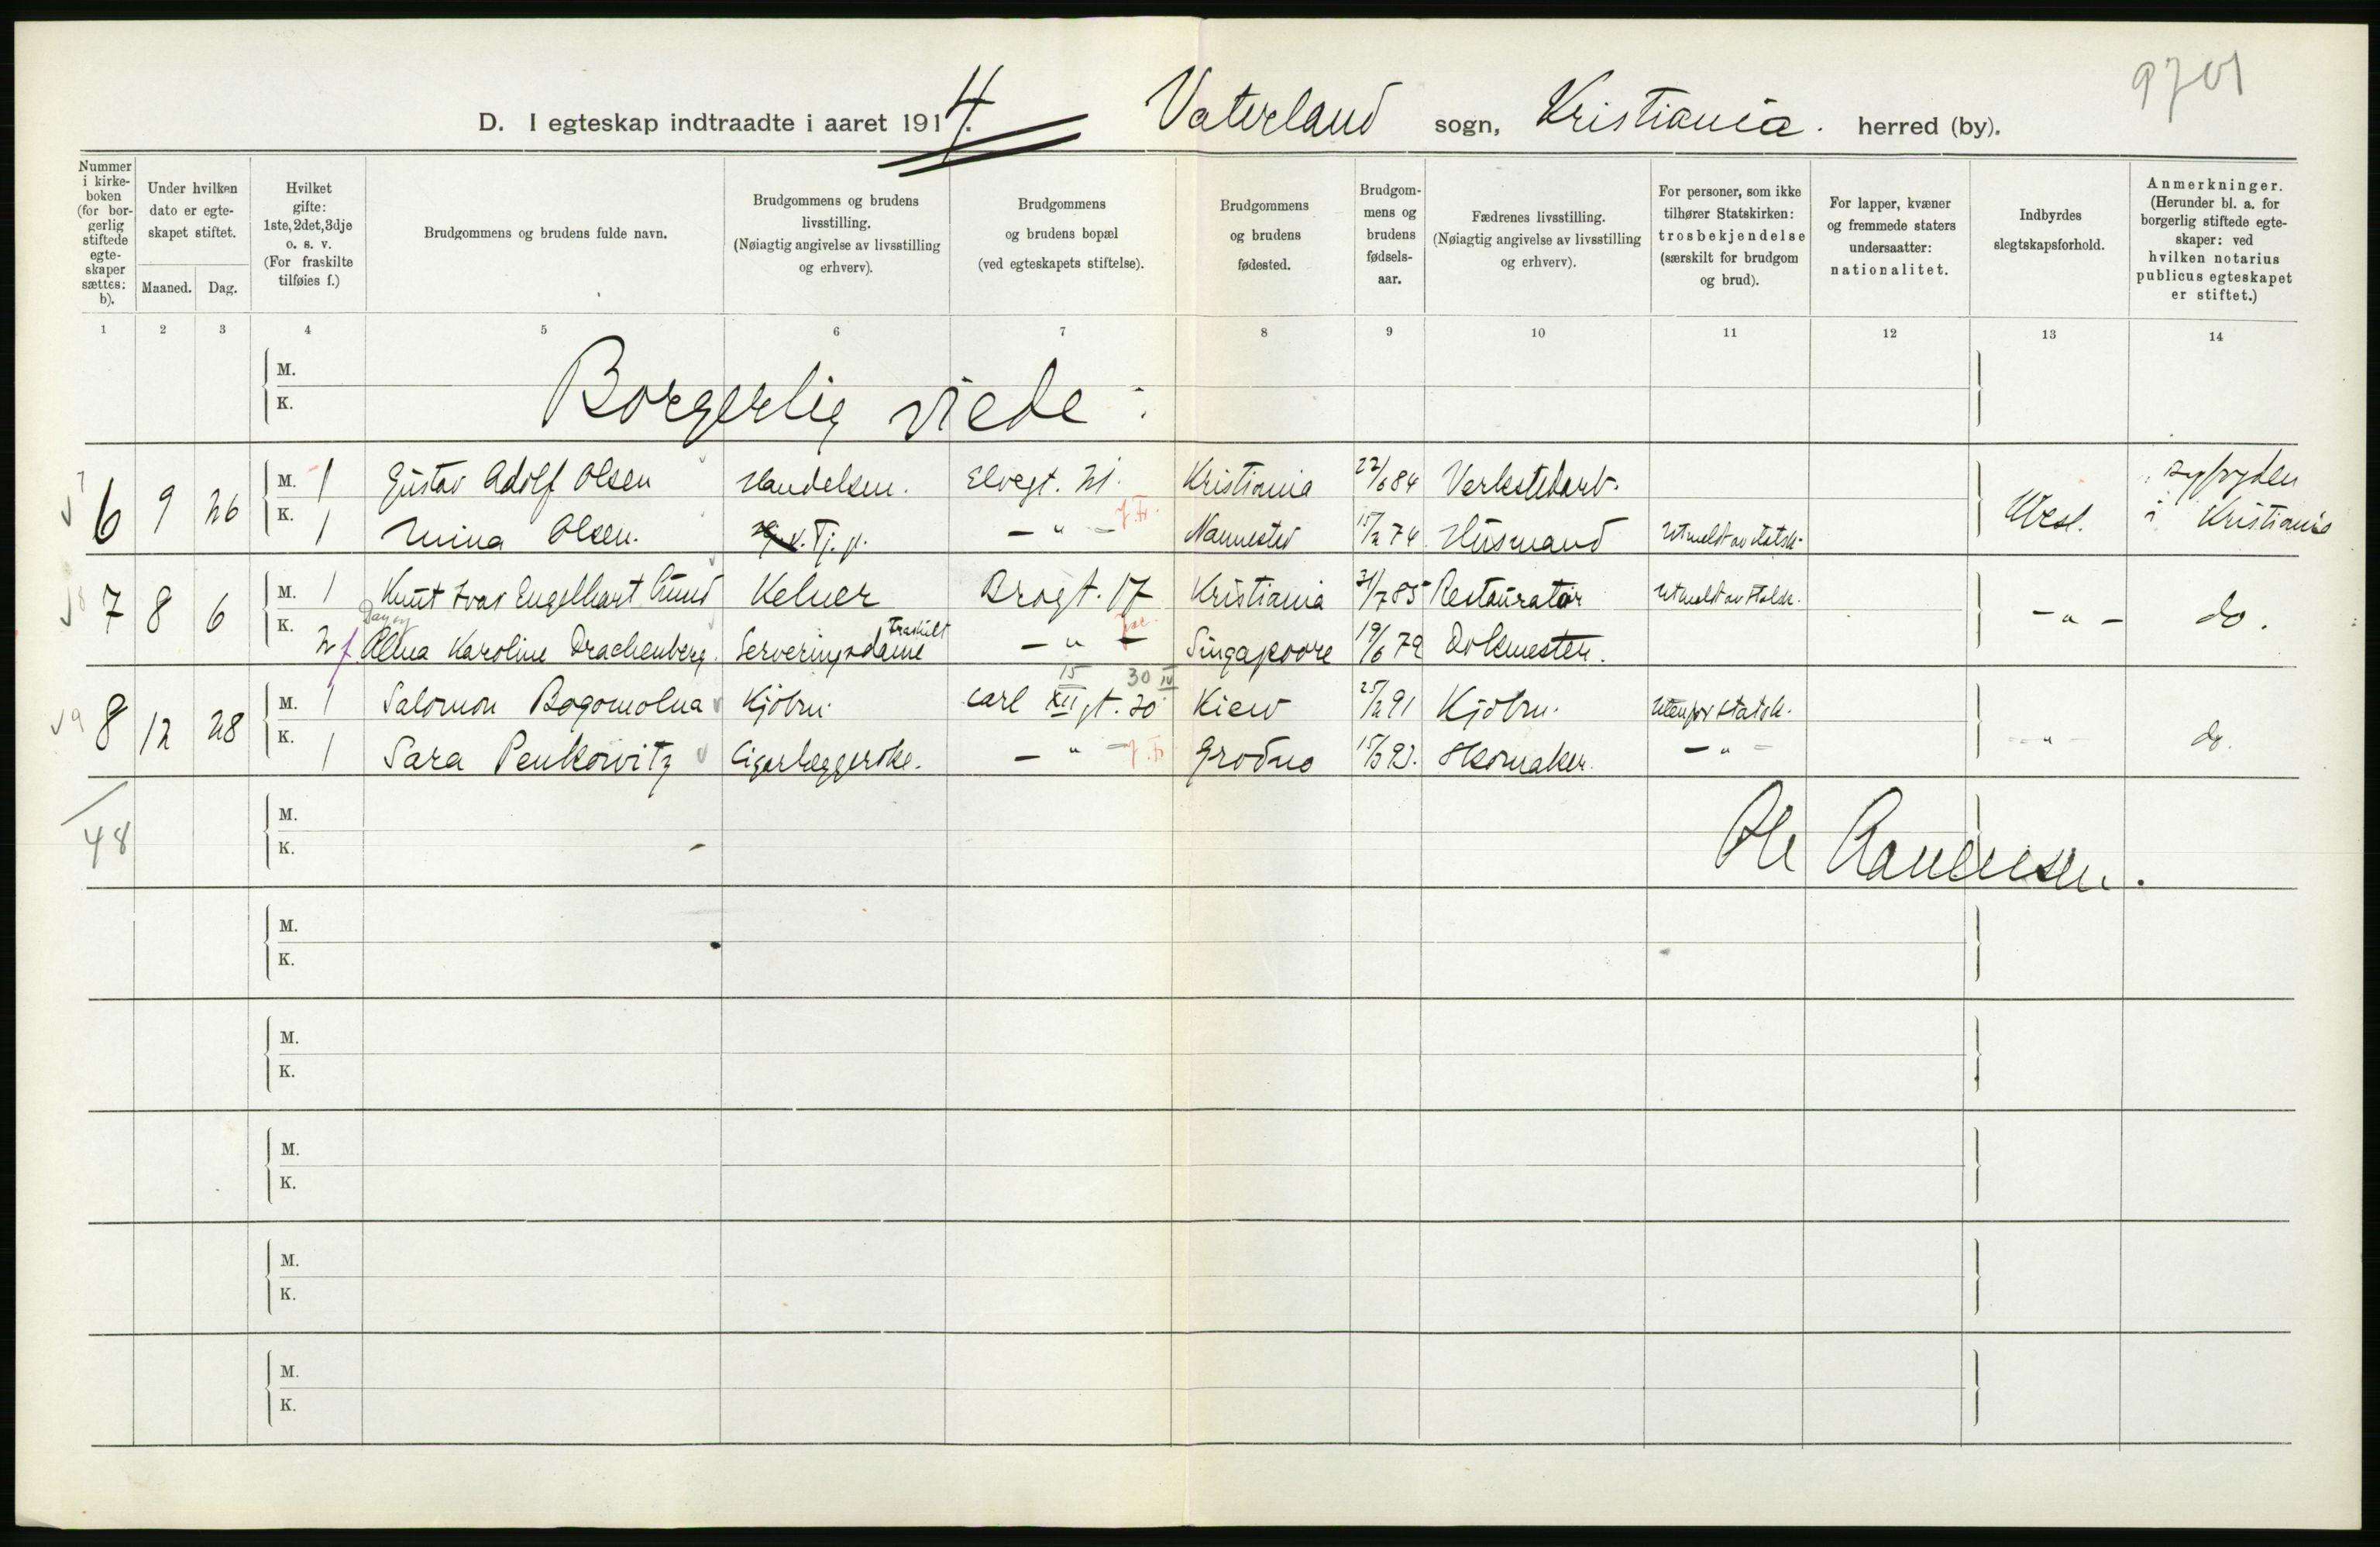 9701
D. I egteskap indtraadte i aaret 1914. Vaterland sogn, Kristiania. herred (by).
Nummer i kirke-boken (for bor-gerlig stiftede egte-skaper sættes: b).
Under hvilken dato er egte-skapet stiftet.
Maaned. Dag.
Hvilket gifte: 1ste, 2det, 3dje o. s. v. (For fraskilte tilføies f.)
Brudgommens og brudens fulde navn.
Brudgommens og brudens livsstilling. (Nøiagtig angivelse av livsstilling og erhverv).
Brudgommens og brudens bopæl (ved egteskapets stiftelse).
Brudgommens og brudens fødested.
Brudgom-mens og brudens fødsels-aar.
Fædrenes livsstilling. (Nøiagtig angivelse av livsstilling og erhverv).
For personer, som ikke tilhører Statskirken: trosbekjendelse (særskilt for brudgom og brud).
For lapper, kvæner og fremmede staters undersaatter: nationalitet.
Indbyrdes slegtskapsforhold.
Anmerkninger. (Herunder bl. a. for borgerlig stiftede egte-skaper: ved hvilken notarius publicus egteskapet er stiftet.)
1 2 3 4 5 6 7 8 9 10 11 12 13 14
M.
K.
Borgerlig viede:
6 9 26 M. 1 Gustav Adolf Olsen Handelsm. Elvegt. 21. Kristiania 22/6 84 Verkstedarb. Ubesl. Byfogden
K. 1 Mina Olsen. Tj. p. — " — Nannestad 15/2 74 Husmand Utmeldt av statsk. i Kristiania
7 8 6 M. 1 Knut Ivar Engelhart Lund Kelner Brogt. 17 Kristiania 31/7 85 Restauratør Utmeldt av statsk. — " — do.
Dagny
K. 2 f Alma Karoline Drachenberg. Serveringsdame Fraskilt — " — Singapoore 19/6 79 Dokmester.
15 30 IV
8 12 28 M. 1 Salomon Bogomolna Kjøbm. Carl XII gt. 20 Kiew 25/2 91 Kjøbm. Utenfor statsk. — " — do.
K. 1 Sara Penkowitz Cigarlæggerske. — " — Grodno 15/3 92. Skomaker. — " —
48
M.
K.
Ole Aamensen.
M.
K.
M.
K.
M.
K.
M.
K.
M.
K.